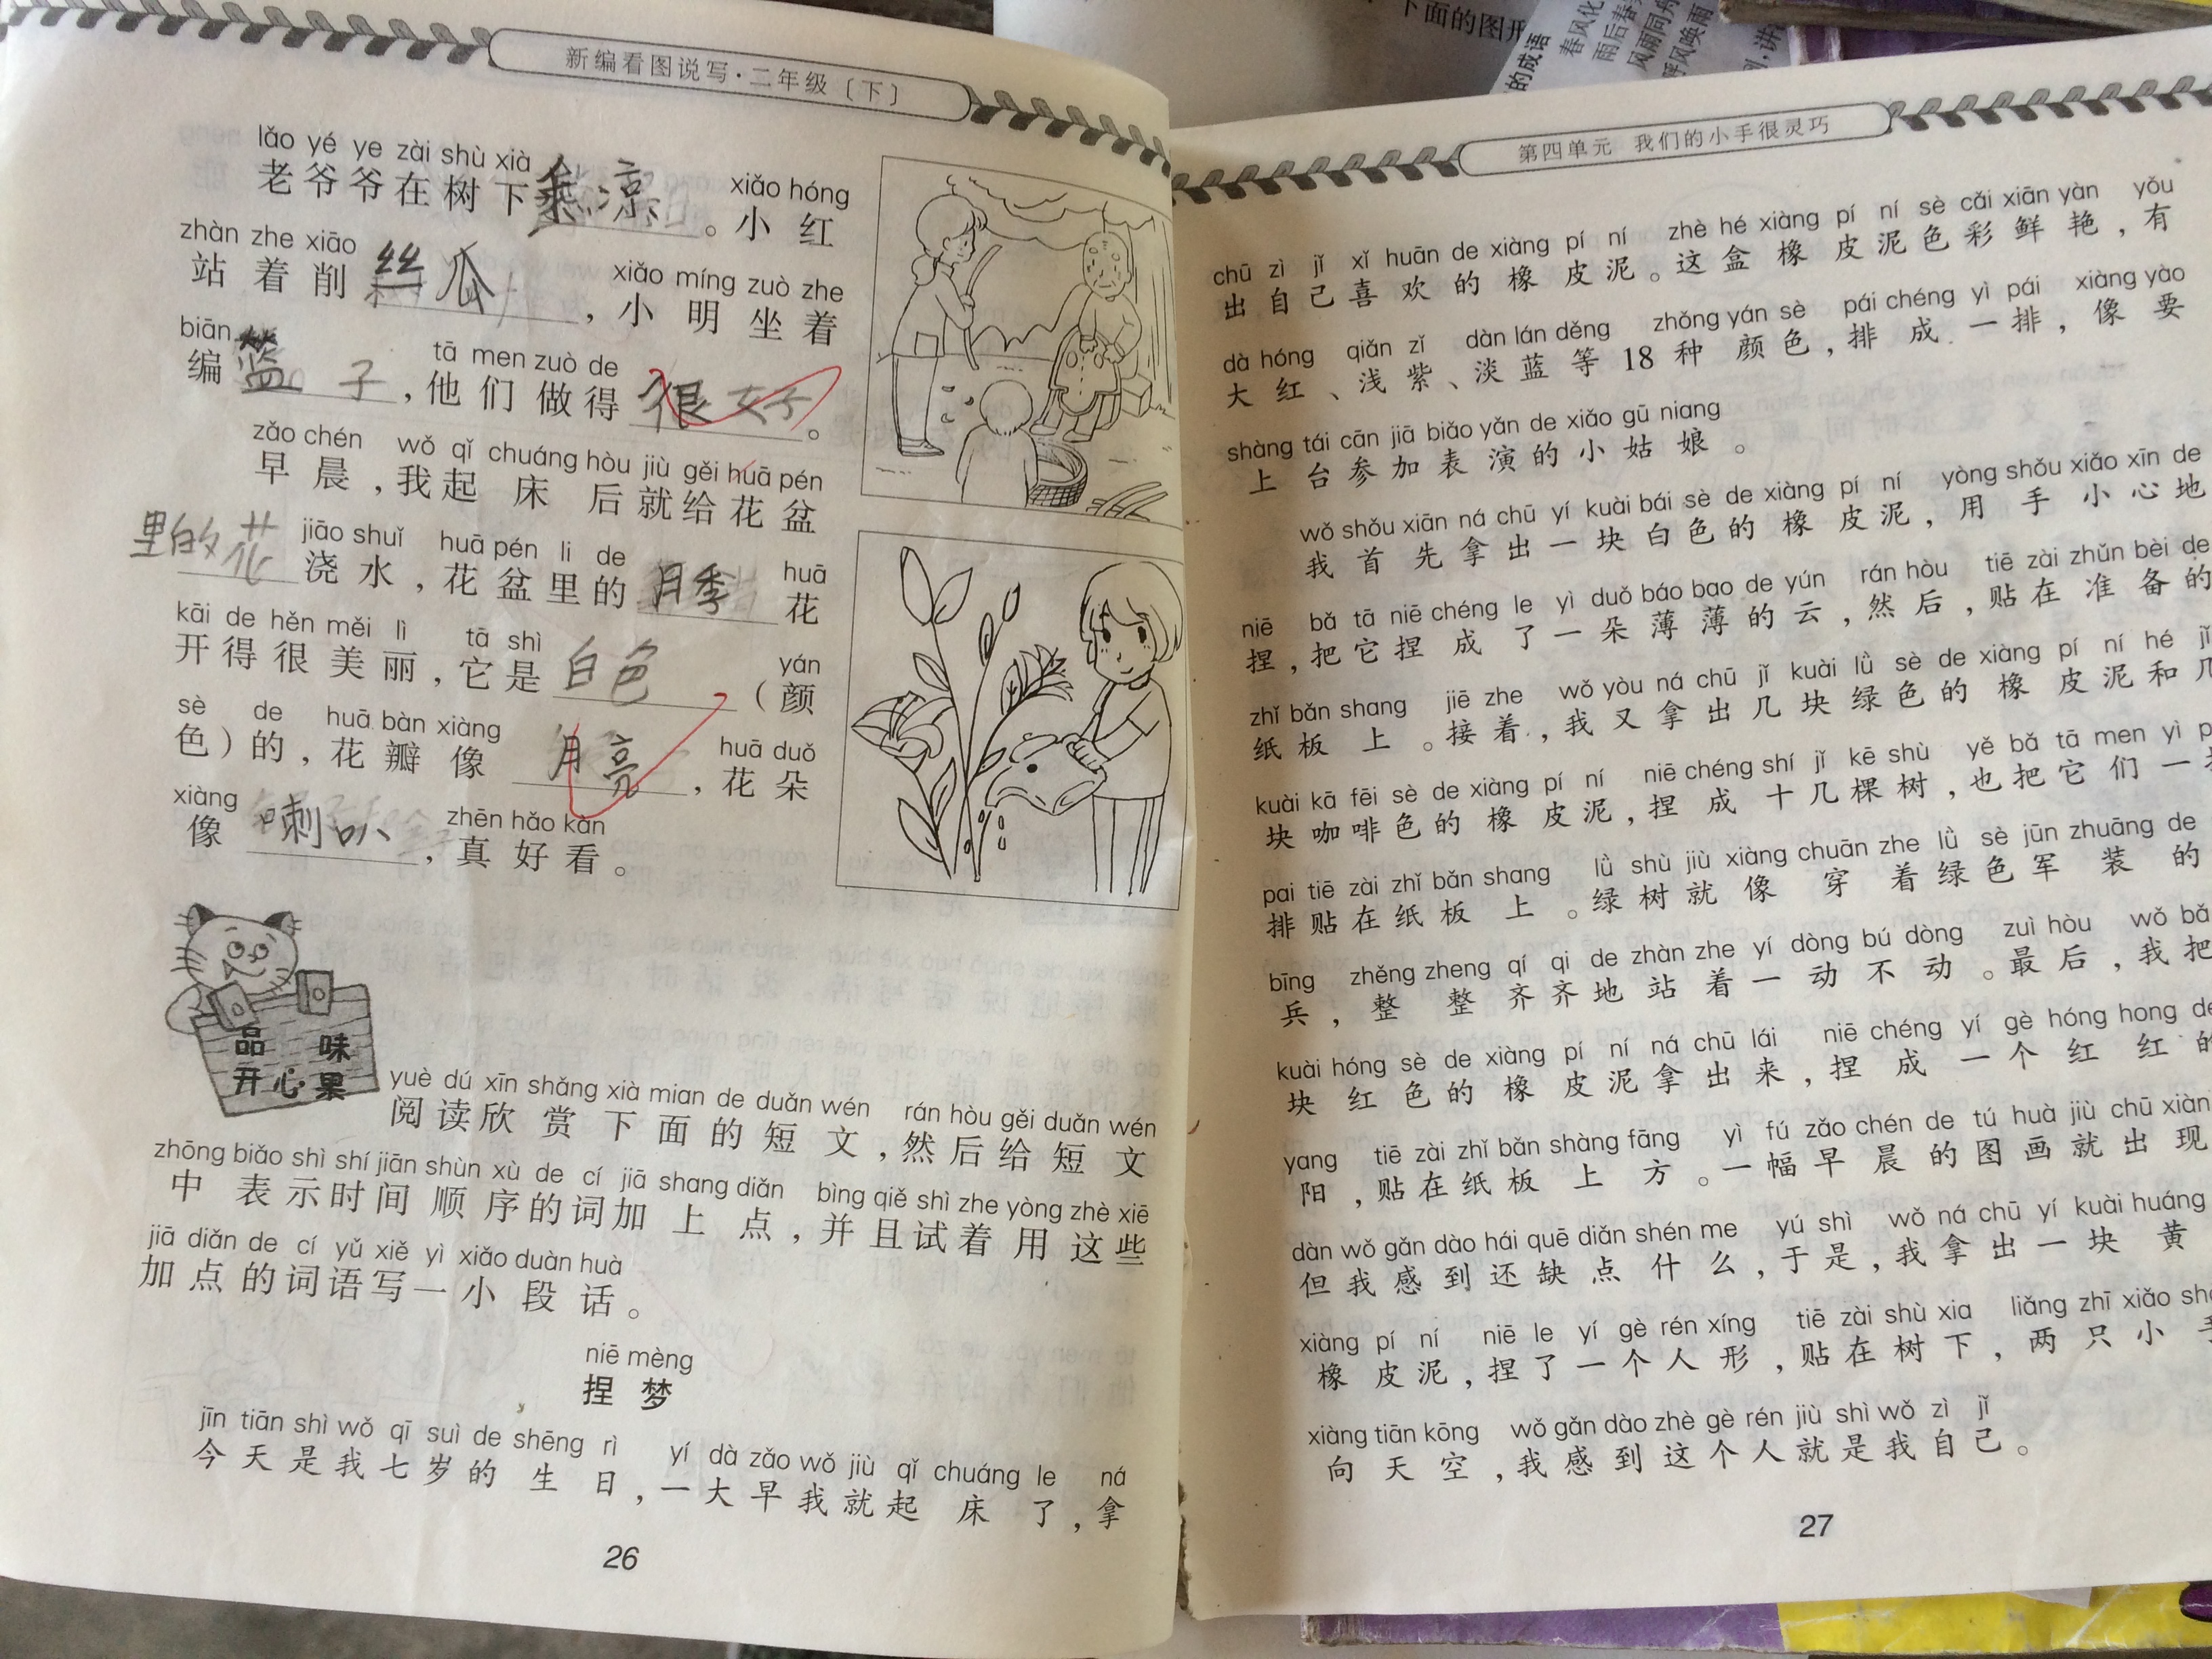 新编看图说写·二年级〔下〕
lǎo yé ye zài shù xià xiǎo hóng
老爷爷在树下乘凉。小红
zhàn zhe xiāo xiǎo míng zuò zhe
站着削丝瓜,小明坐着
biān tā men zuò de
编篮子,他们做得很好。
zǎo chén wǒ qǐ chuáng hòu jiù gěi huā pén
早晨,我起床后就给花盆
jiāo shuǐ huā pén li de huā
里的花浇水,花盆里的月季花
kāi de hěn měi lì tā shì yán
开得很美丽,它是白色(颜
sè de huā bàn xiàng huā duǒ
色)的,花瓣像月亮,花朵
xiàng zhēn hǎo kàn
像喇叭,真好看。
品味
开心果
yuè dú xīn shǎng xià mian de duǎn wén rán hòu gěi duǎn wén
阅读欣赏下面的短文,然后给短文
zhōng biǎo shì shí jiān shùn xù de cí jiā shang diǎn bìng qiě shì zhe yòng zhè xiē
中表示时间顺序的词加上点,并且试着用这些
jiā diǎn de cí yǔ xiě yì xiǎo duàn huà
加点的词语写一小段话。
niē mèng
捏梦
jīn tiān shì wǒ qī suì de shēng rì yí dà zǎo wǒ jiù qǐ chuáng le ná
今天是我七岁的生日,一大早我就起床了,拿
26
下面的图形
的成语
春风化
雨后春
风雨同舟
呼风唤雨
第四单元 我们的小手很灵巧
chū zì jǐ xǐ huān de xiàng pí ní zhè hé xiàng pí ní sè cǎi xiān yàn yǒu
出自己喜欢的橡皮泥。这盒橡皮泥色彩鲜艳,有
dà hóng qiǎn zǐ dàn lán děng zhǒng yán sè pái chéng yì pái xiàng yào
大红、浅紫、淡蓝等18种颜色,排成一排,像要
shàng tái cān jiā biǎo yǎn de xiǎo gū niang
上台参加表演的小姑娘。
wǒ shǒu xiān ná chū yí kuài bái sè de xiàng pí ní yòng shǒu xiǎo xīn de
我首先拿出一块白色的橡皮泥,用手小心地
niē bǎ tā niē chéng le yì duǒ báo bao de yún rán hòu tiē zài zhǔn bèi de
捏,把它捏成了一朵薄薄的云,然后,贴在准备的
zhǐ bǎn shang jiē zhe wǒ yòu ná chū jǐ kuài lǜ sè de xiàng pí ní hé jǐ
纸板上。接着,我又拿出几块绿色的橡皮泥和几
kuài kā fēi sè de xiàng pí ní niē chéng shí jǐ kē shù yě bǎ tā men yì
块咖啡色的橡皮泥,捏成十几棵树,也把它们一
pai tiē zài zhǐ bǎn shang lǜ shù jiù xiàng chuān zhe lǜ sè jūn zhuāng de
排贴在纸板上。绿树就像穿着绿色军装的
bīng zhěng zheng qí qi de zhàn zhe yí dòng bú dòng zuì hòu wǒ bǎ
兵,整整齐齐地站着一动不动。最后,我把
kuài hóng sè de xiàng pí ní ná chū lái niē chéng yí gè hóng hong de
块红色的橡皮泥拿出来,捏成一个红红的
yang tiē zài zhǐ bǎn shàng fāng yì fú zǎo chén de tú huà jiù chū xiàn
阳,贴在纸板上方。一幅早晨的图画就出现
dàn wǒ gǎn dào hái quē diǎn shén me yú shì wǒ ná chū yí kuài huáng
但我感到还缺点什么,于是,我拿出一块黄
xiàng pí ní niē le yí gè rén xíng tiē zài shù xia liǎng zhī xiǎo
橡皮泥,捏了一个人形,贴在树下,两只小手
xiàng tiān kōng wǒ gǎn dào zhè gè rén jiù shì wǒ zì jǐ
向天空,我感到这个人就是我自己。
27